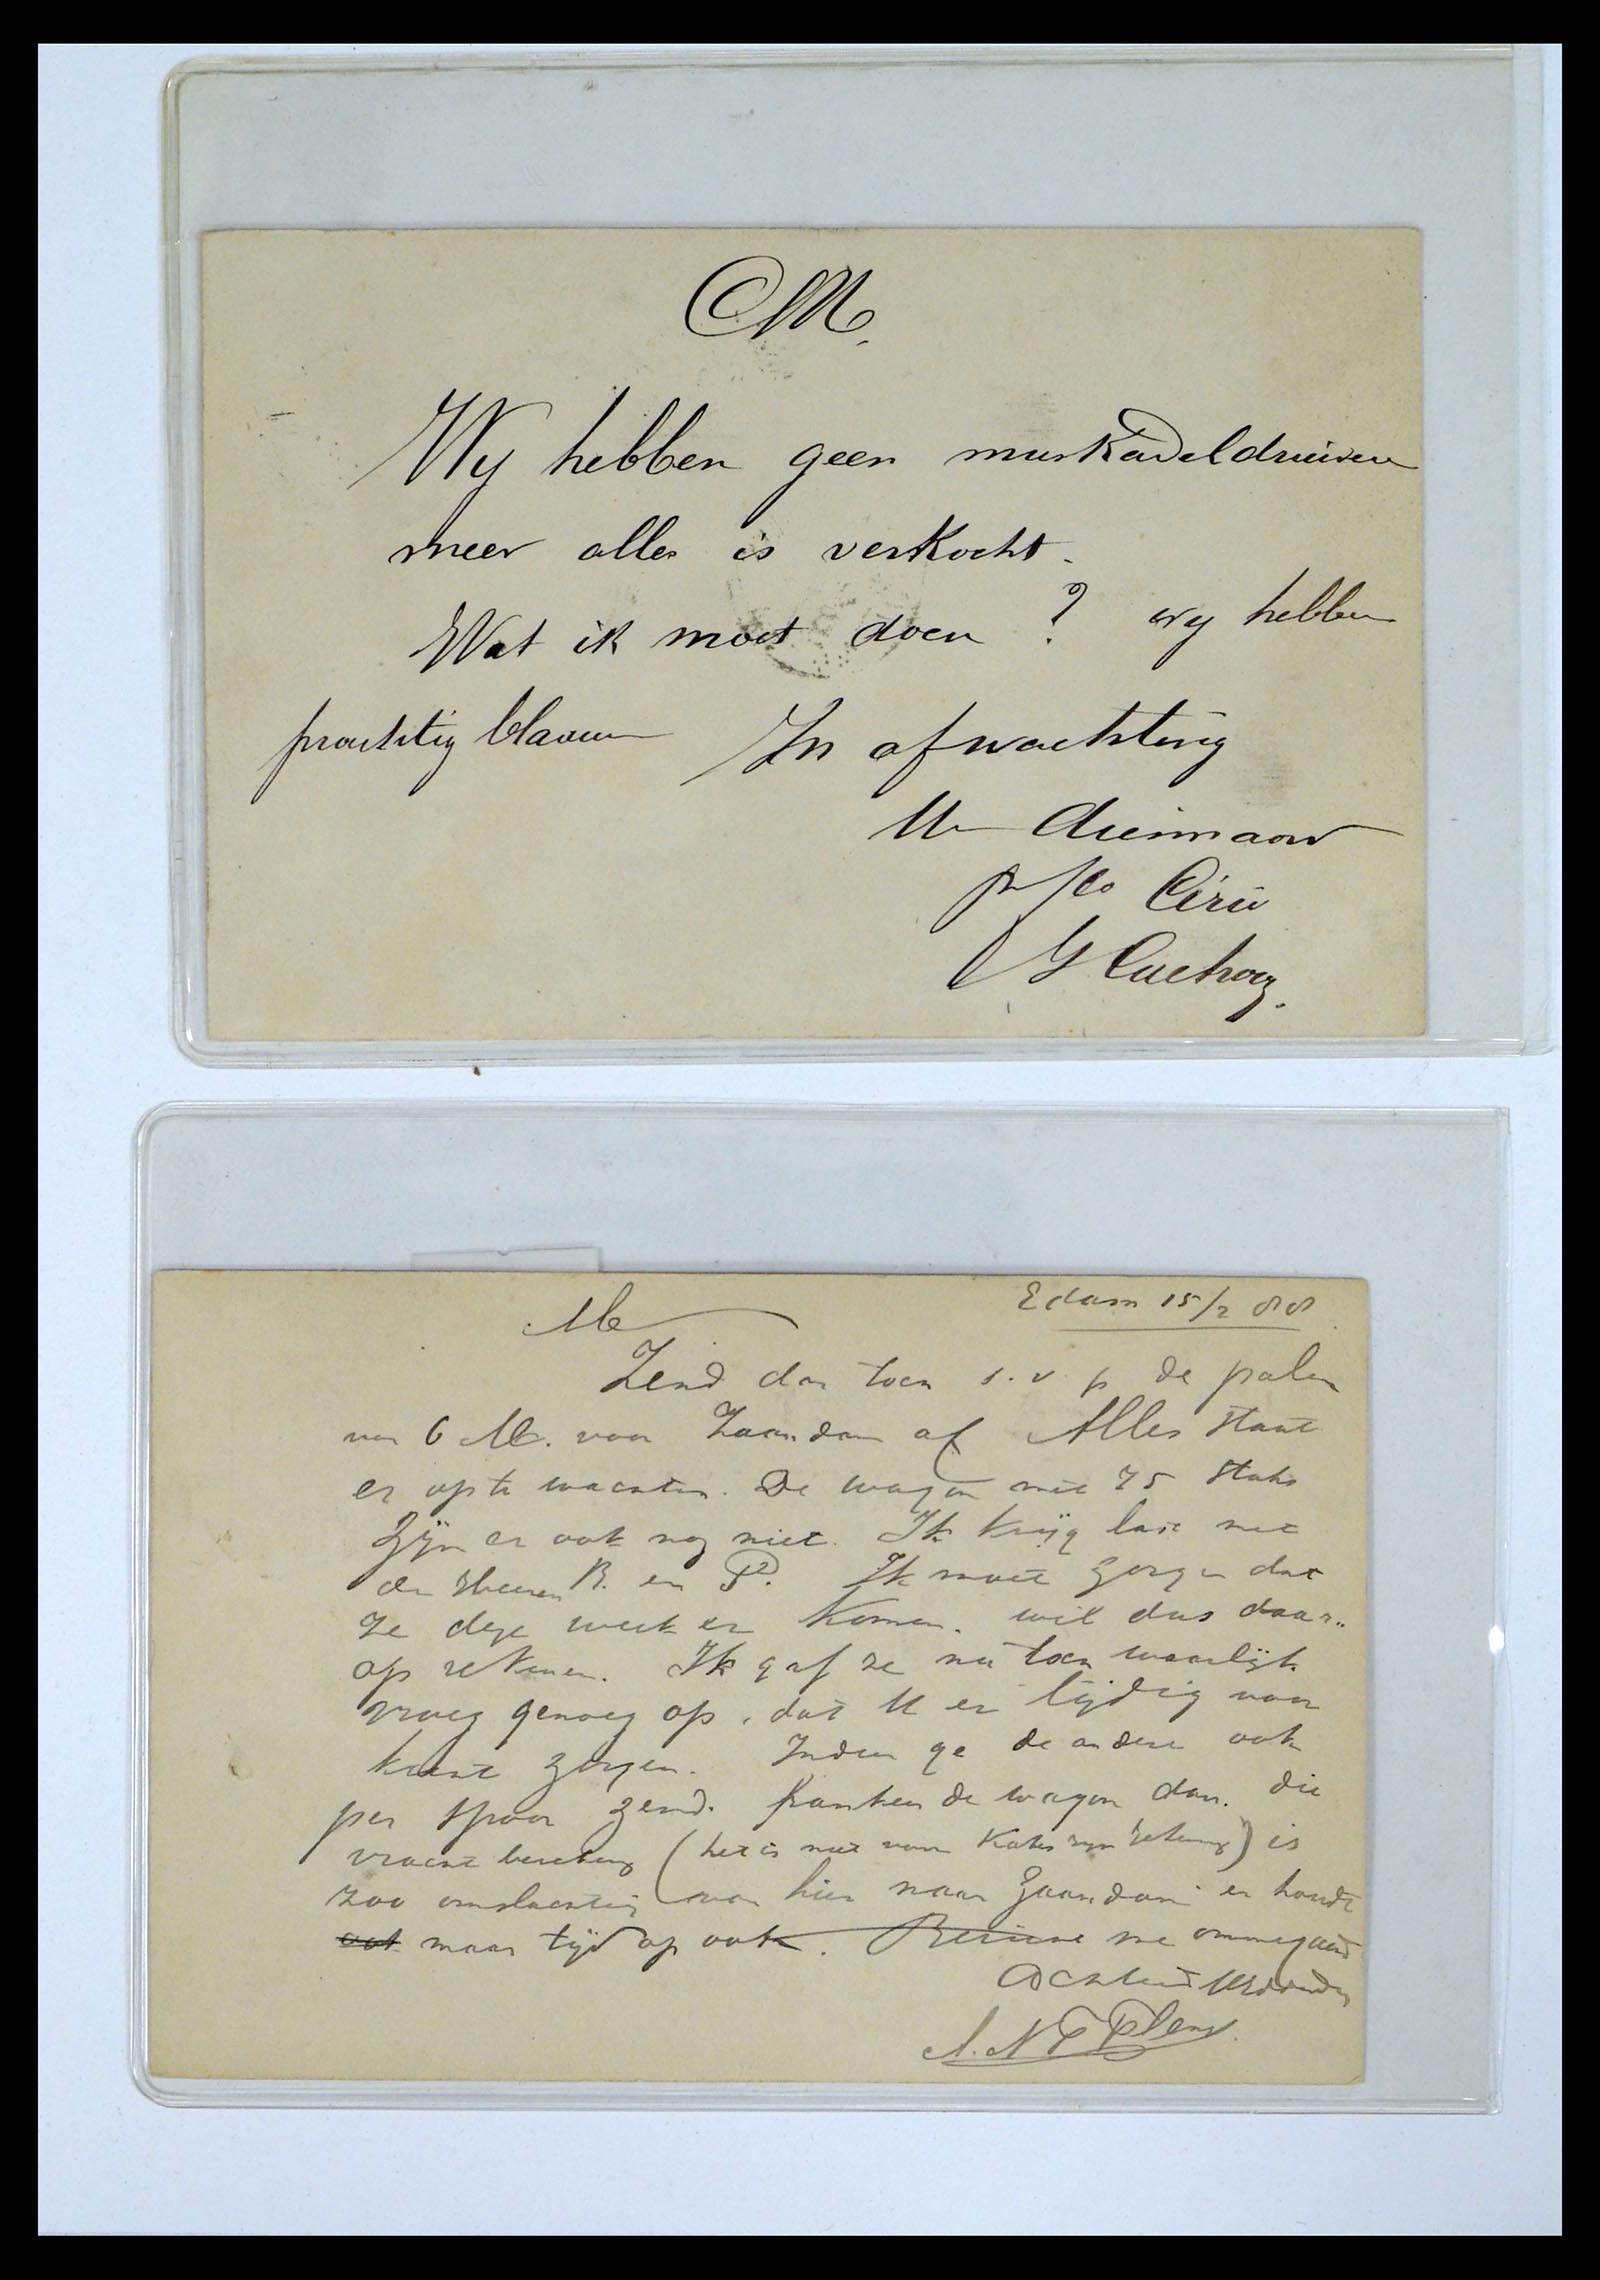 M.
Wy hebben geen muskadeldruiven
meer alles is verkocht.
Wat ik moet doen ? wy hebben
prachtig blauw In afwachting
Uw dienaar
G
M
Edam 15/2 88
Zend dan toch s.v.p de palen
van 6 M. voor Zaandam af Alles staat
er op te wachten. De wagon met 75 stuks
Zijn er ook nog niet. Ik krijg last met
den Heeren R. en P. Ik moet zorgen dat
ze deze week er komen. wil dus daar
op rekenen. Ik gaf ze nu toch waarlijk
vroeg genoeg op, dat U er tijdig voor
kunt zorgen. Indien ge de andere ook
per spoor zend. frankeer de wagon dan. die
vracht berekening (het is niet voor) is
zoo omslachtig van hier naar Zaandam en houdt
maar tijd op ook. me ommegaand
Achtend
A. N.